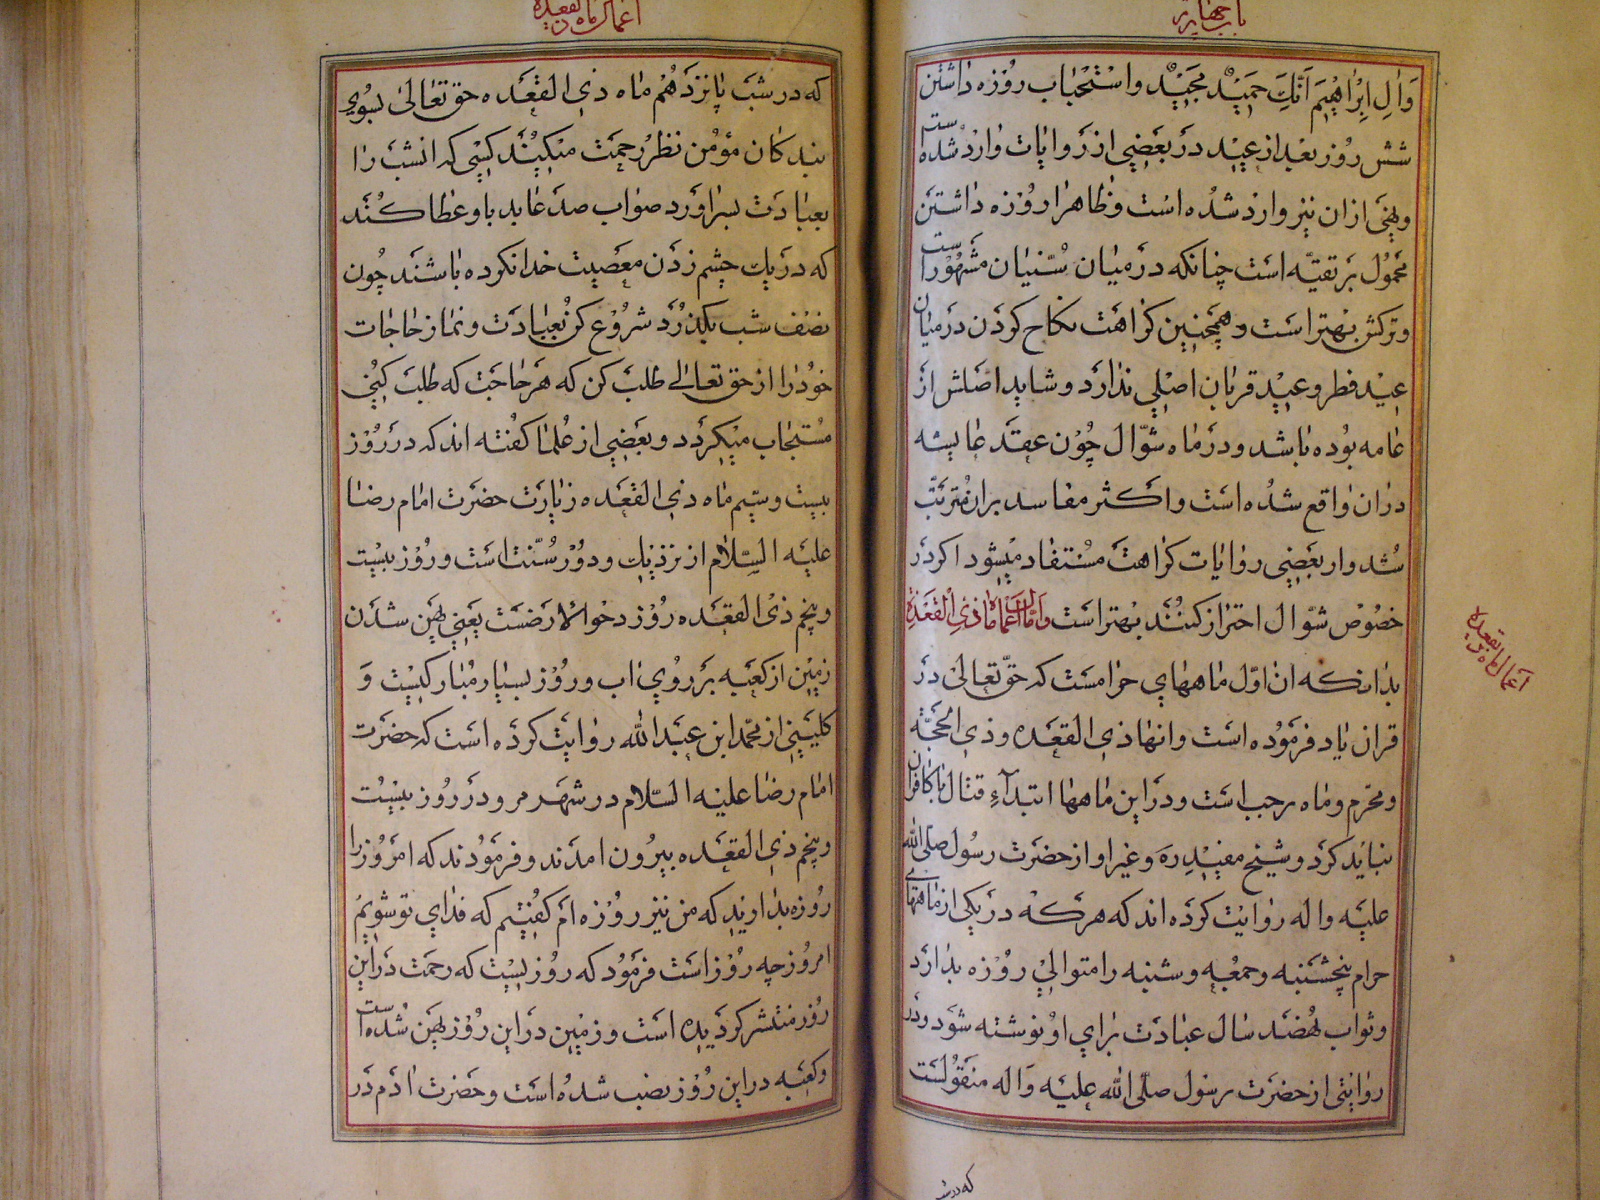 باب چهارم
وَالِ اِبْرٰاهِیمَ اَنَّكَ حَمِیْدٌ مَجِیْدٌ واستحباب روزه داشتن
شش روز بعد از عید در بعضی از روایات وارد شده است
ونهی ازان نیز وارد شده است وظاهرا روزه داشتن
محمول بر تقیّه است چنانکه در میان سنّیان مشهور است
وترکش بهتر است وهمچنین کراهت نکاح کردن در میان
عید فطر وعید قربان اصلی ندارد وشاید اصلش از
عامه بوده باشد ودر ماه شوّال چون عقد عایشه
دران واقع شده است واکثر مفاسد بران مترتّب
شد واز بعضی روایات کراهت مستفاد میشود اگر در
خصوص شوّال احتراز کنند بهتر است وامّا اعمال ماه ذی القعده
بدانکه ان اوّل ماههای حرامست که حقّ تعالی در
قران یاد فرموده است وانها ذی القعده وذی الحجّة
ومحرّم وماه رجب است ودر این ماهها ابتدآءِ قتال با کافران
نباید کرد وشیخ مفید ره وغیر او از حضرت رسول صلی الله
علیه واله روایت کرده اند که هرکه در یکی از ماههای
حرام پنجشنبه وجمعه وشنبه را متوالی روزه بدارد
وثواب نهصد سال عبادت برای او نوشته شود ودر
روایتی از حضرت رسول صلّی الله علیه واله منقولست
که در شب
اعمال ماه ذی القعده
اعمال ماه ذیقعده
که در شب پانزدهم ماه ذی القعده حق تعالی بسوی
بندکان مؤمن نظر رحمت میکند کسی که انشب را
بعبادت بسر اورد صواب صد عابد باو عطا کنند
که در یك چشم زدن معصیت خدا نکرده باشند چون
نصف شب بگذرد شروع کن بعبادت ونماز حاجات
خود را از حق تعالی طلب کن که هر حاجت که طلب کنی
مستجاب میکردد وبعضی از علما کفته اند که در روز
بیست وسیّم ماه ذی القعده زیارت حضرت امام رضا
علیه السّلام از نزدیك ودور سنّت است وروز بیست
وپنجم ذی القعده روز دحوالارضست یعنی پهن شدن
زمین از کعبه بر روی اب وروز بسیار مبارکیست و
کلینی از محمّد ابن عبد الله روایت کرده است که حضرت
امام رضا علیه السّلام در شهر مرو در روز بیست
وپنجم ذی القعده بیرون امدند وفرمودند که امروز را
روزه بدارید که من نیز روزه ام کفتیم که فدای تو شویم
امروز چه روز است فرمود که روزیست که رحمت در این
روز منتشر کردیده است وزمین در این روز پهن شده است
وکعبه در این روز نصب شده است وحضرت ادم در